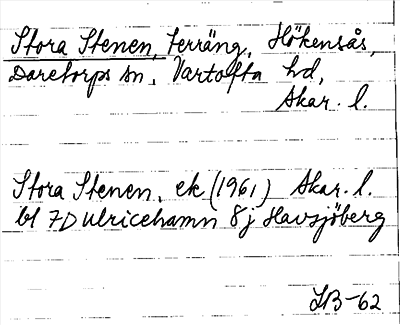 Stora Stenen, terräng, Hökensås,
Daretorps sn, Vartofta hd,
Skar. l.
Stora Stenen, ek (1961) Skar. l.
bl 7D Ulricehamn 8j Havsjöberg
LB-62